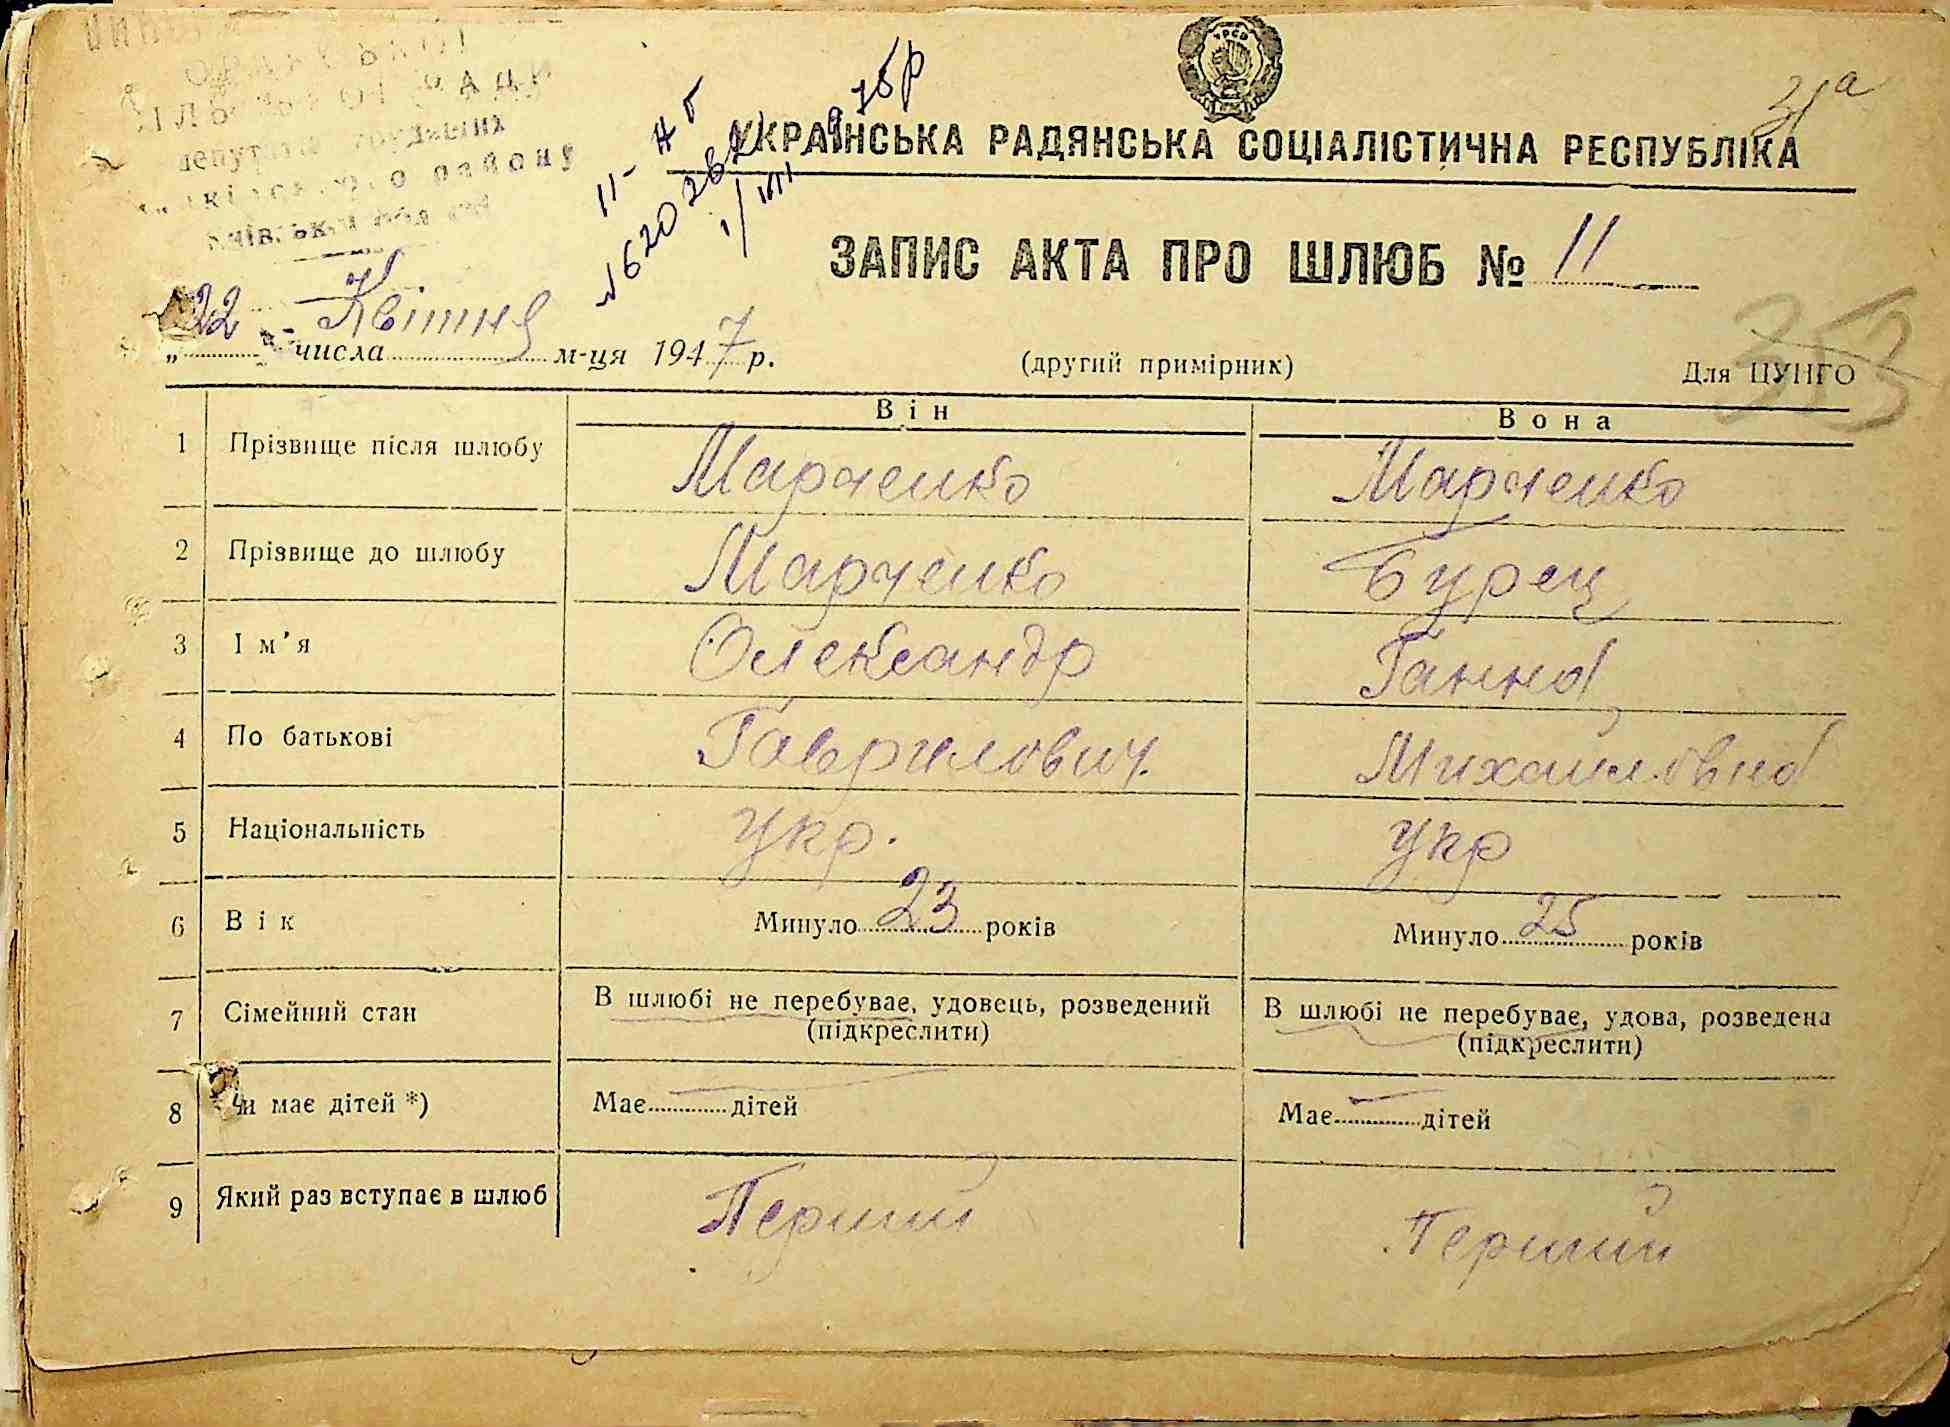 депутатів трудящих
району
II-НБ
УРСР
31а
УКРАЇНСЬКА РАДЯНСЬКА СОЦІАЛІСТИЧНА РЕСПУБЛІКА
ЗАПИС АКТА ПРО ШЛЮБ № 11
353
„22" числа Квітня м-ця 1947 р. (другий примірник) Для ЦУНГО
Він Вона
1 Прізвище після шлюбу Марченко Марченко
2 Прізвище до шлюбу Марченко Бурец
3 Ім'я Олександр Ганна
4 По батькові Гаврилович. Михайловна
5 Національність Укр. Укр
6 Вік Минуло 23 років Минуло 25 років
7 Сімейний стан В шлюбі не перебуває, удовець, розведений В шлюбі не перебуває, удова, розведена
(підкреслити) (підкреслити)
8 Чи має дітей *) Має — дітей Має — дітей
9 Який раз вступає в шлюб Перший Перший